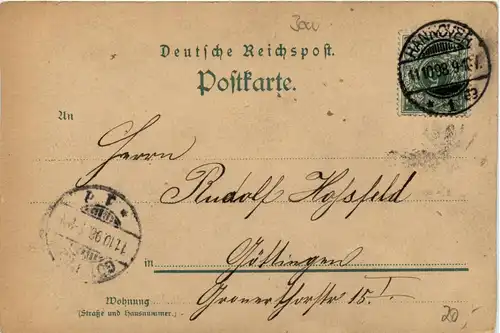 300
Deutsche Reichspost.
Postkarte.
HANNOVER
11.10.98.9-10V.
* 1 *
An
Herrn
Rudolf Hossfeld
11.10.98
in Göttingen
Wohnung
(Straße und Hausnummer.)
Gronerthorstr 15 I
20,